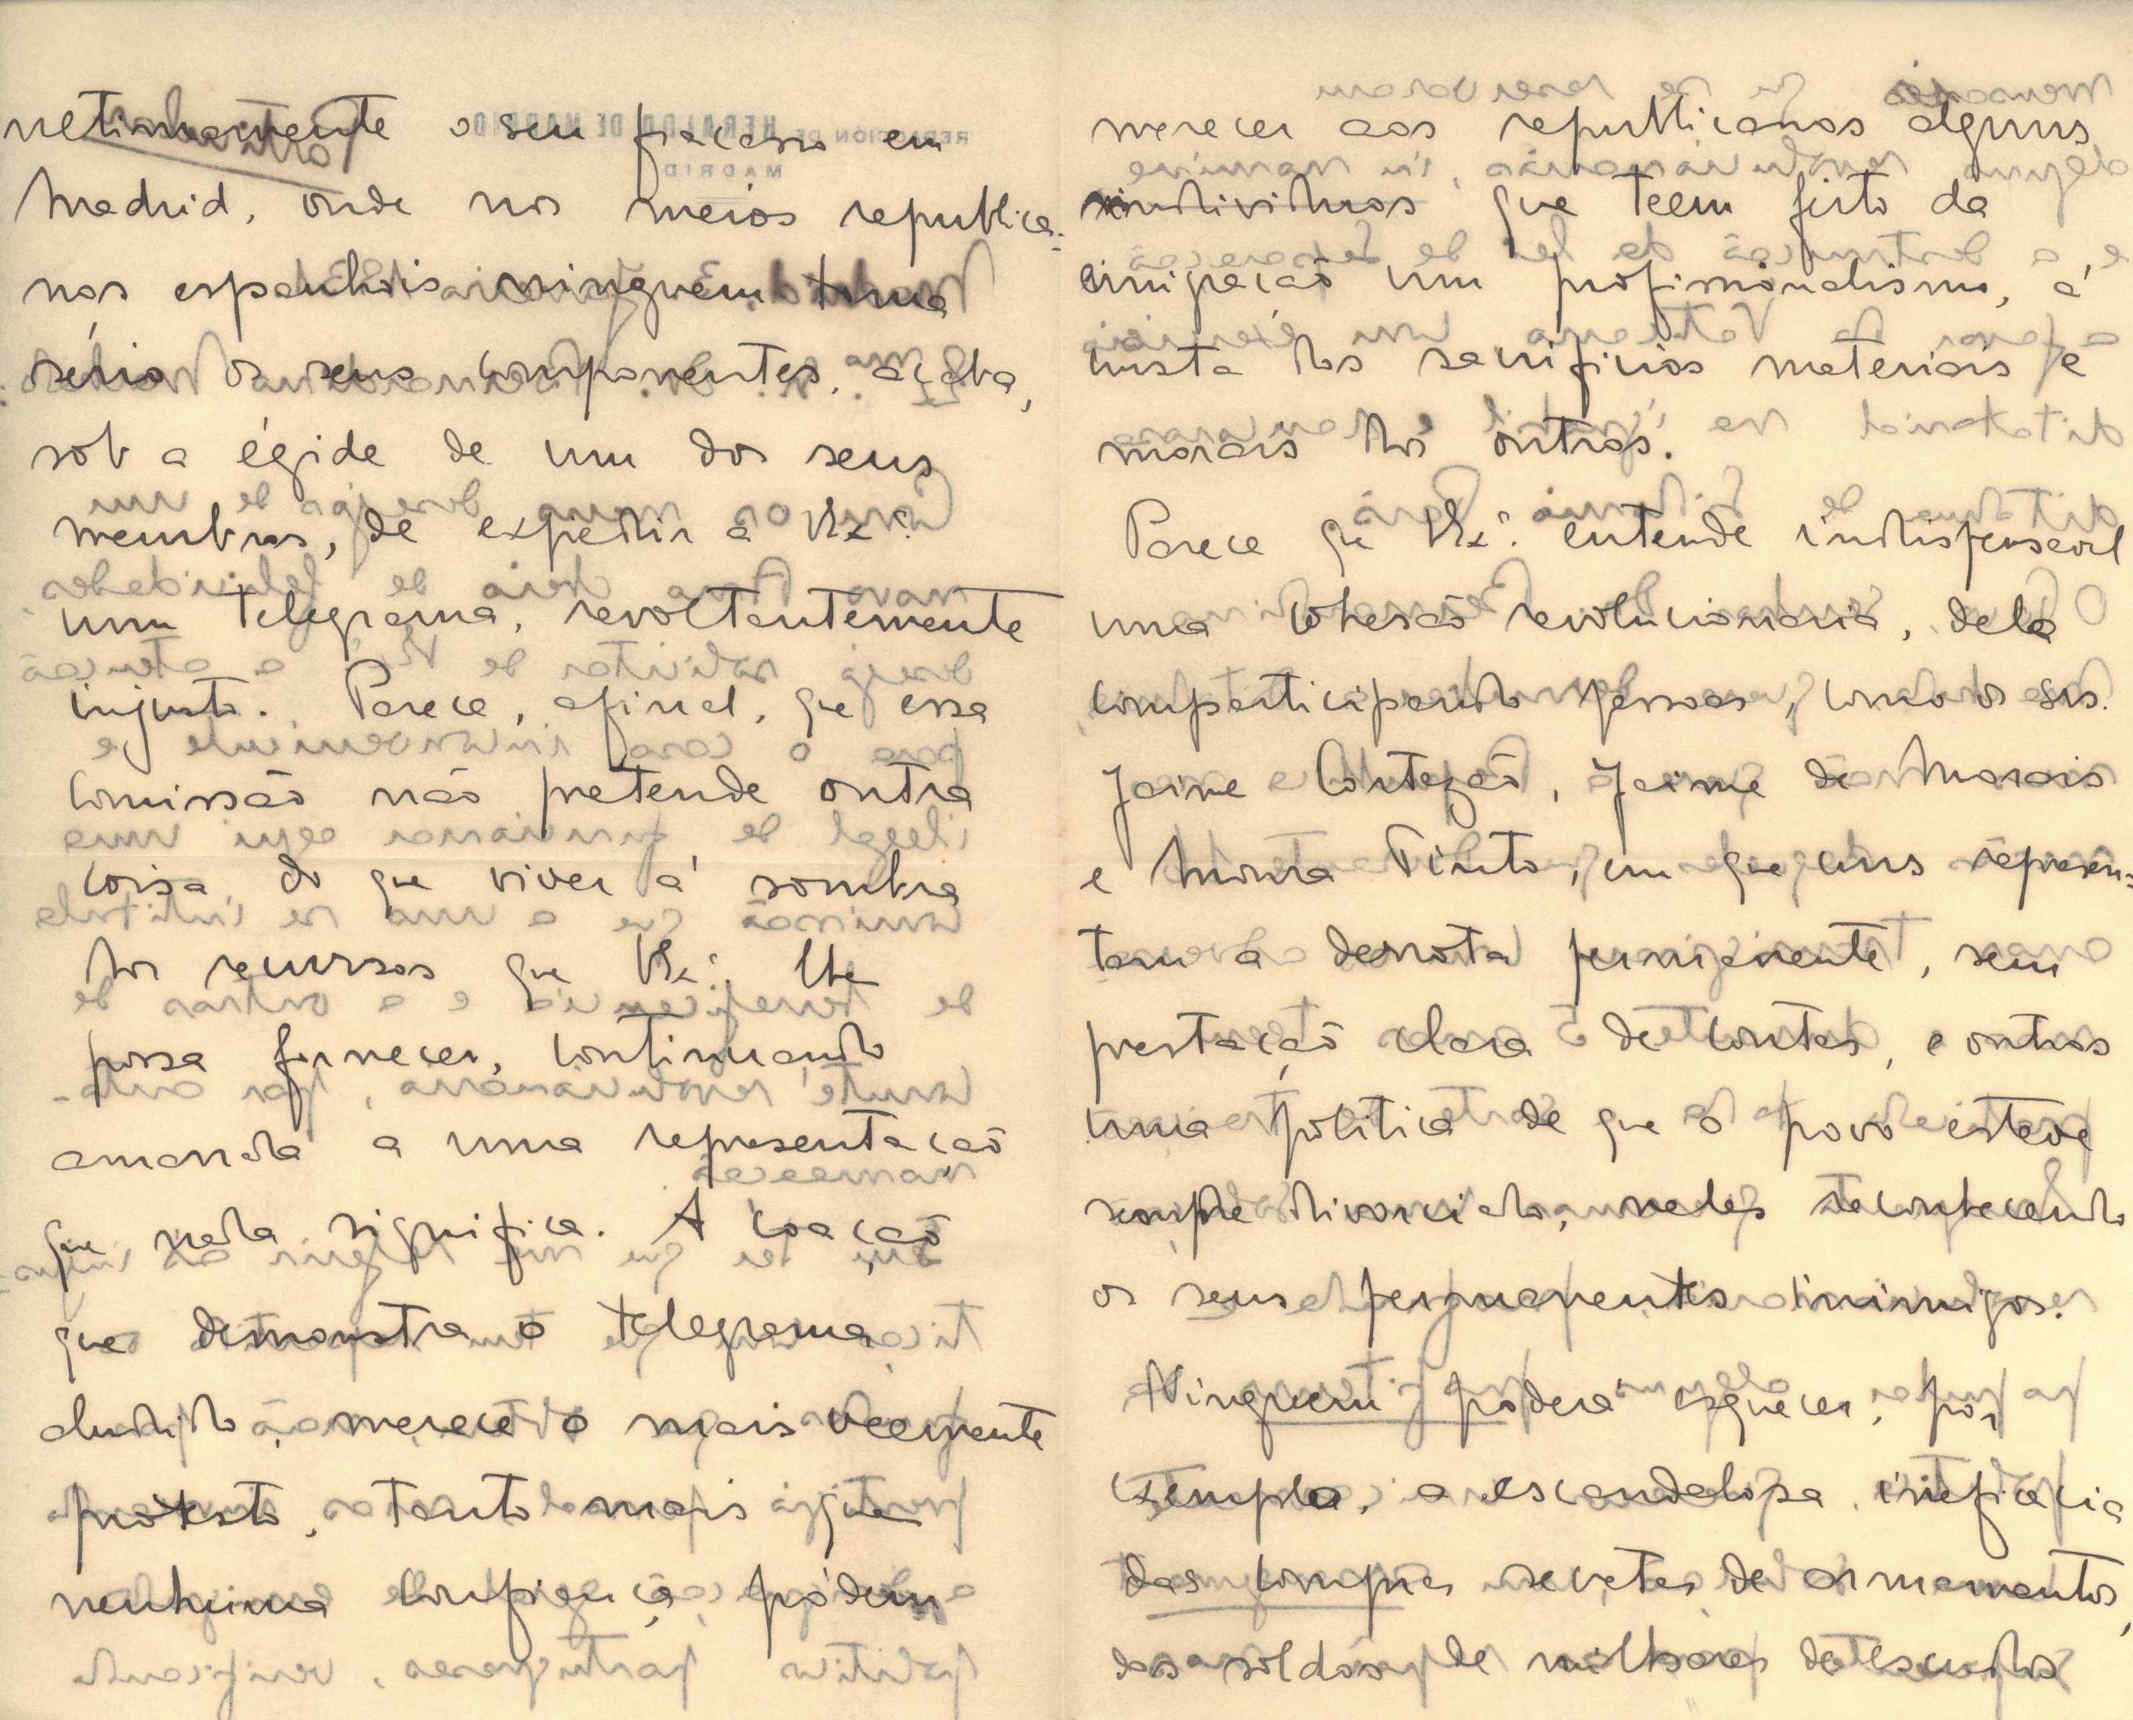 netimamente o seu fracasso em
Madrid, onde nos meios republica-
nos espanhois ninguém toma
a sério os seus componentes, acaba,
sob a égide de um dos seus
membros, de expedir a V. Ex.ª
um telegrama, revoltantemente
injusto. Parece, afinal, que essa
Comissão não pretende outra
coisa do que viver á sombra
dos recursos que V. Ex.ª lhe
possa fornecer, continuando
amarrada a uma representação
que nada significa. A coacção
que demonstra o telegrama
aludido, merece o mais veemente
protesto, tanto mais que
nenhuma confiança pódem
merecer aos republicanos alguns
individuos que teem feito da
emigração um profissionalismo, á
custa dos sacrificios materiais e
morais dos outros.
Parece que V. Ex.ª entende indispensavel
uma cohesão revolucionaria, dela
comparticipando pessoas, como os srs.
Jaime Cortezão, Jaime de Morais
e Moura Pinto, em que uns represen-
tam a derrota permanente, sem
prestação clara de contas, e outros
uma politica de que o povo esteve
sempre divorciado, neles reconhecendo
os seus permanentes inimigos.
Ninguem poderá esquecer, por
exemplo, a escandalosa ineficacia
das compras secretas de armamentos,
dos soldos de milhares de escudos